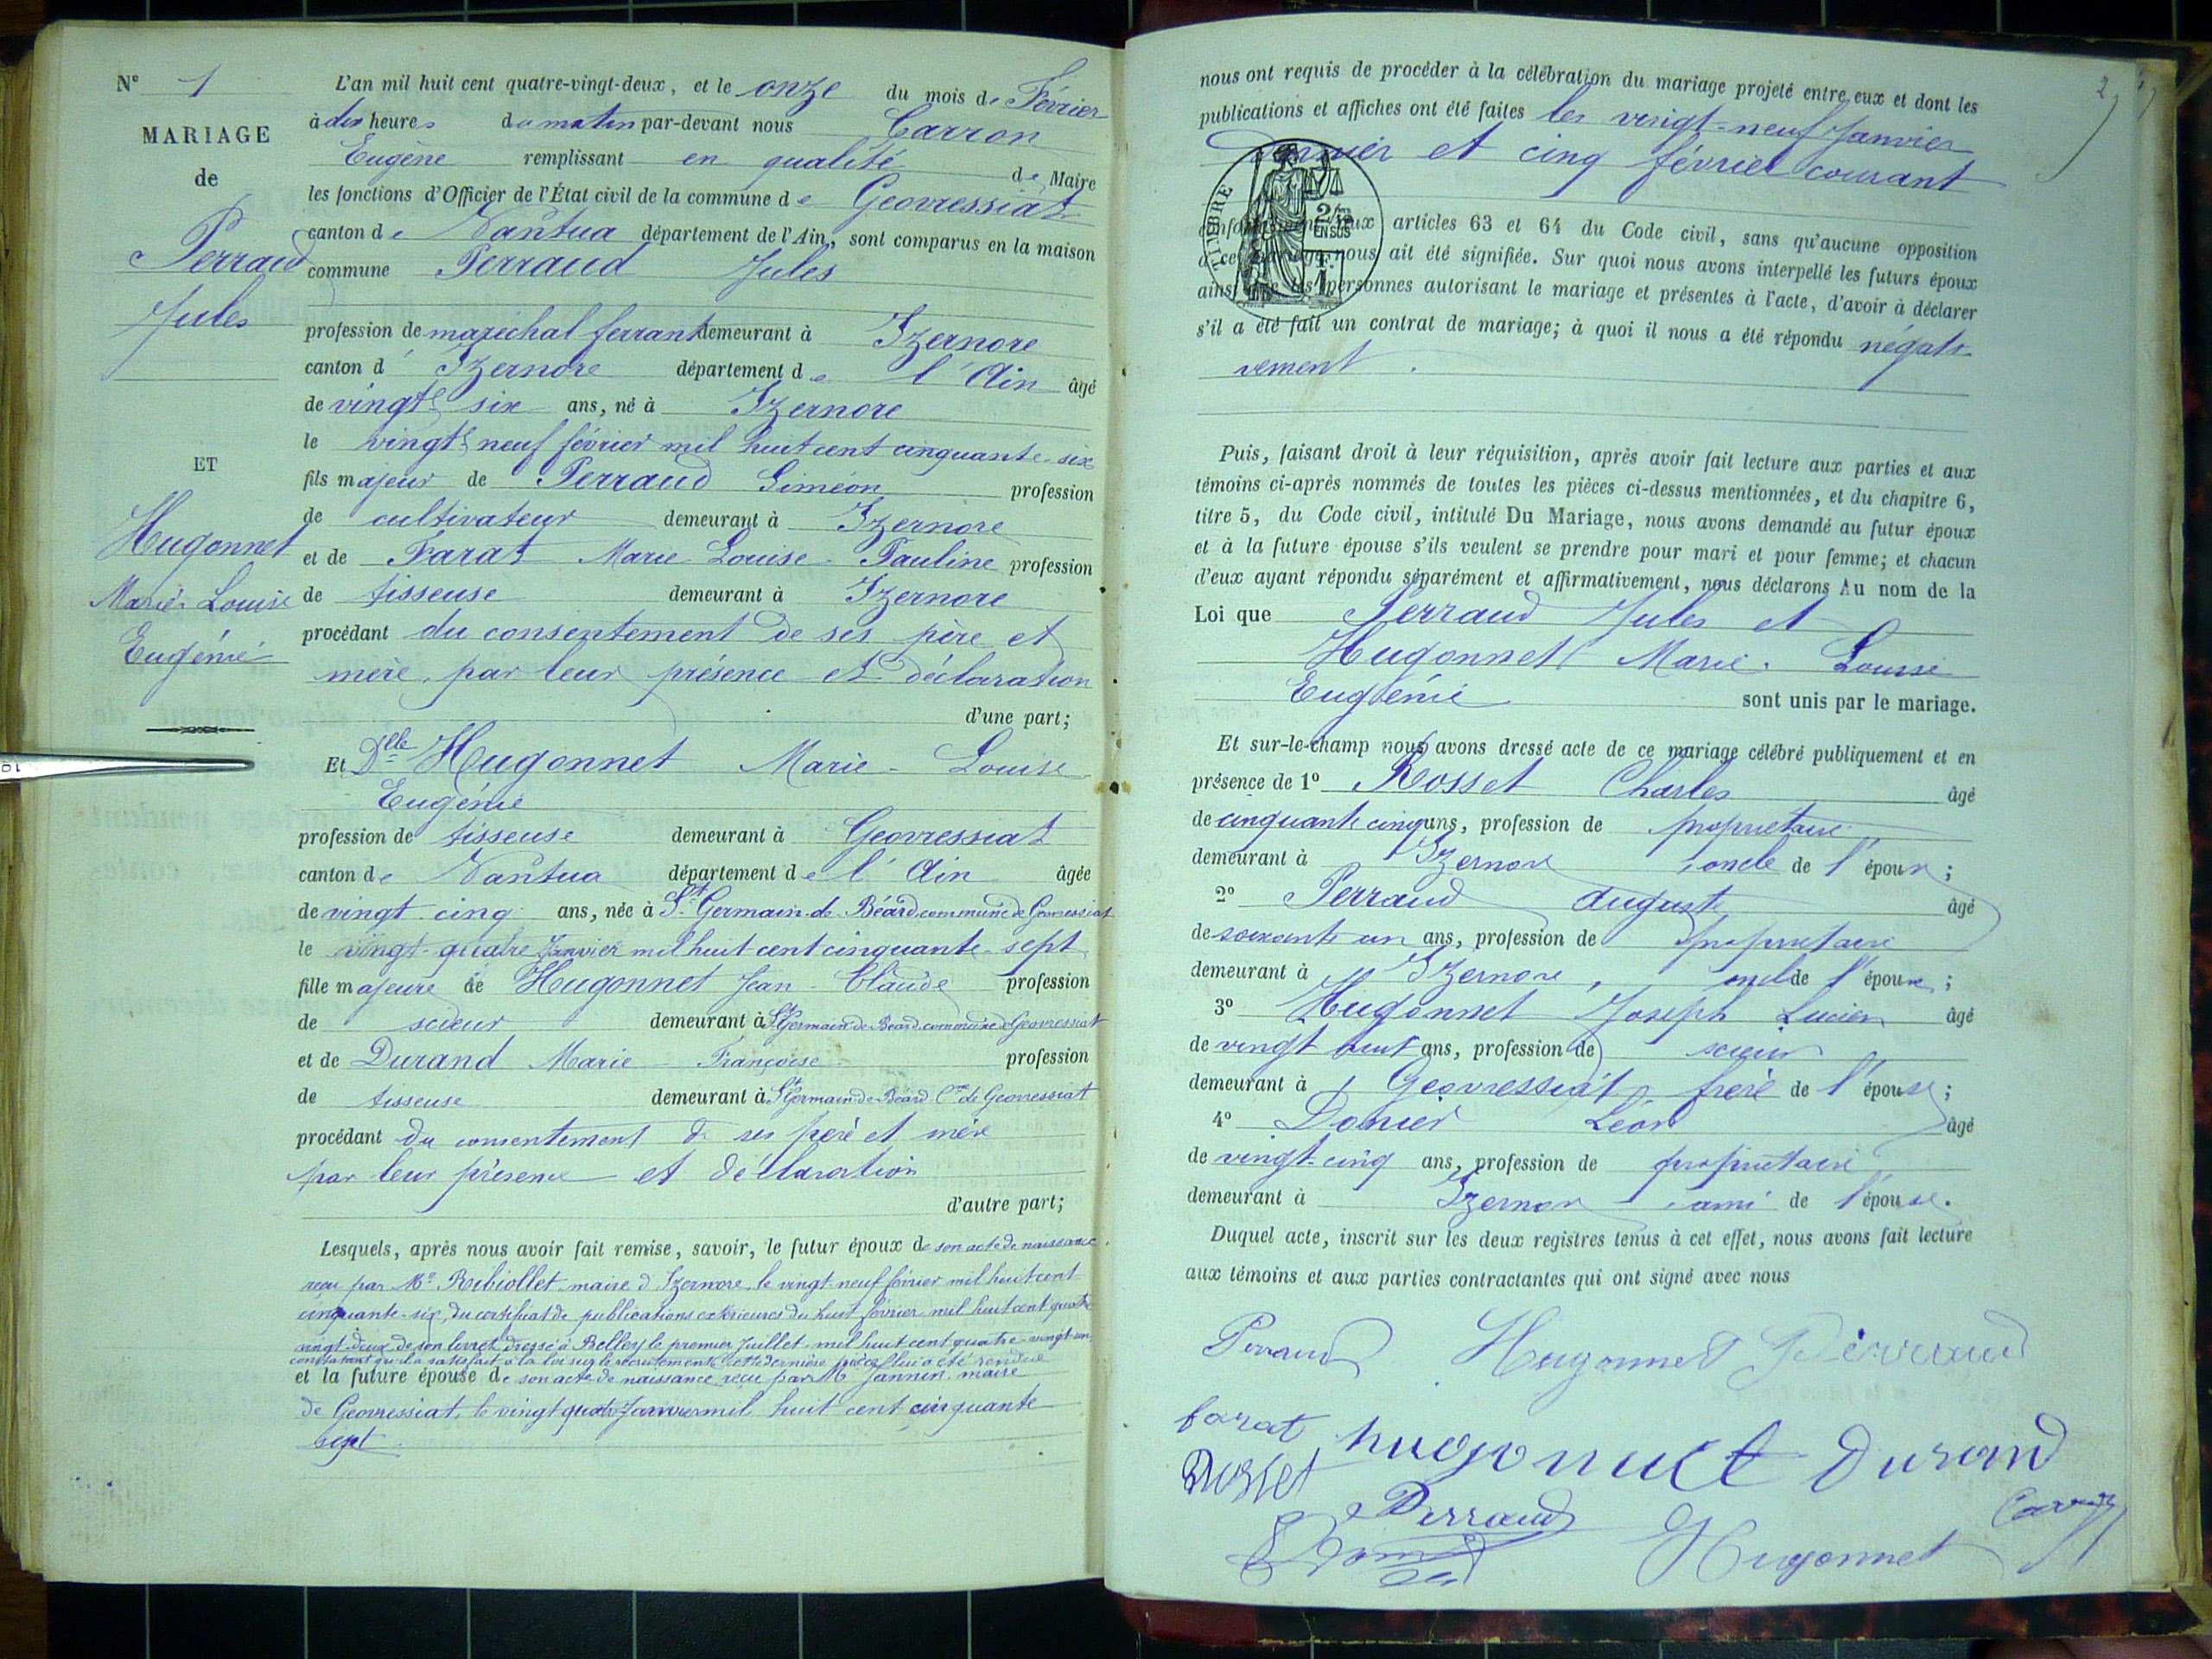 N° 1
MARIAGE
de
Perraud
Jules
ET
Hugonnet
Marie-Louise
Eugénie
L'an mil huit cent quatre-vingt-deux, et le onze du mois de Février
à dix heures du matin par-devant nous Carron
Eugène remplissant en qualité de Maire
les fonctions d'Officier de l'État civil de la commune de Géovressiat
canton de Nantua département de l'Ain, sont comparus en la maison
commune Perraud Jules
profession de maréchal ferrant demeurant à Izernore
canton d' Izernore département de l'Ain âgé
de vingt six ans, né à Izernore
le vingt neuf février mil huit cent cinquante-six
fils majeur de Perraud Siméon profession
de cultivateur demeurant à Izernore
et de Farat Marie Louise Pauline profession
de tisseuse demeurant à Izernore
procédant du consentement de ses père et
mère, par leur présence et déclaration
d'une part;
Et Dlle Hugonnet Marie-Louise
Eugénie
profession de tisseuse demeurant à Géovressiat
canton de Nantua département de l'Ain âgée
de vingt-cinq ans, née à St Germain-de-Béard commune de Géovressiat
le vingt-quatre Janvier mil huit cent cinquante-sept
fille majeure de Hugonnet Jean-Claude profession
de scieur demeurant à St Germain-de-Béard commune de Géovressiat
et de Durand Marie Françoise profession
de tisseuse demeurant à St Germain-de-Béard Cne de Géovressiat
procédant du consentement de ses père et mère
par leur présence et déclaration
d'autre part;
Lesquels, après nous avoir fait remise, savoir, le futur époux de son acte de naissance
reçu par Mr Ribiollet maire d'Izernore, le vingt-neuf février mil huit cent
cinquante-six, du certificat de publications extérieures du huit février mil huit cent quatre
vingt-deux, de son livret dressé à Belley le premier Juillet mil huit cent quatre-vingt-un
constatant qu'il a satisfait à la loi sur le recrutement cette dernière pièce lui a été rendue
et la future épouse de son acte de naissance reçu par Mr Jannin maire
de Géovressiat, le vingt quatre Janvier mil huit cent cinquante
sept.
2
nous ont requis de procéder à la célébration du mariage projeté entre eux et dont les
publications et affiches ont été faites les vingt-neuf Janvier
dernier et cinq février courant
TIMBRE
EN SUS
conformément aux articles 63 et 64 du Code civil, sans qu'aucune opposition
à ce mariage nous ait été signifiée. Sur quoi nous avons interpellé les futurs époux
ainsi que les personnes autorisant le mariage et présentes à l'acte, d'avoir à déclarer
s'il a été fait un contrat de mariage; à quoi il nous a été répondu négati-
vement.
Puis, faisant droit à leur réquisition, après avoir fait lecture aux parties et aux
témoins ci-après nommés de toutes les pièces ci-dessus mentionnées, et du chapitre 6,
titre 5, du Code civil, intitulé Du Mariage, nous avons demandé au futur époux
et à la future épouse s'ils veulent se prendre pour mari et pour femme; et chacun
d'eux ayant répondu séparément et affirmativement, nous déclarons Au nom de la
Loi que Perraud Jules et
Hugonnet Marie-Louise
Eugénie sont unis par le mariage.
Et sur-le-champ nous avons dressé acte de ce mariage célébré publiquement et en
présence de 1° Rosset Charles âgé
de cinquante cinq ans, profession de propriétaire
demeurant à Izernore, oncle de l'époux;
2° Perraud Auguste âgé
de soixante un ans, profession de propriétaire
demeurant à Izernore, oncle de l'époux;
3° Hugonnet Joseph Lucien âgé
de vingt huit ans, profession de scieur
demeurant à Géovressiat, frère de l'épouse;
4° Donier Léon âgé
de vingt-cinq ans, profession de propriétaire
demeurant à Izernore, ami de l'épouse.
Duquel acte, inscrit sur les deux registres tenus à cet effet, nous avons fait lecture
aux témoins et aux parties contractantes qui ont signé avec nous
Perraud Hugonnet Perraud
farat hugonnet Durand
Rosset Perraud Carron
Hugonnet